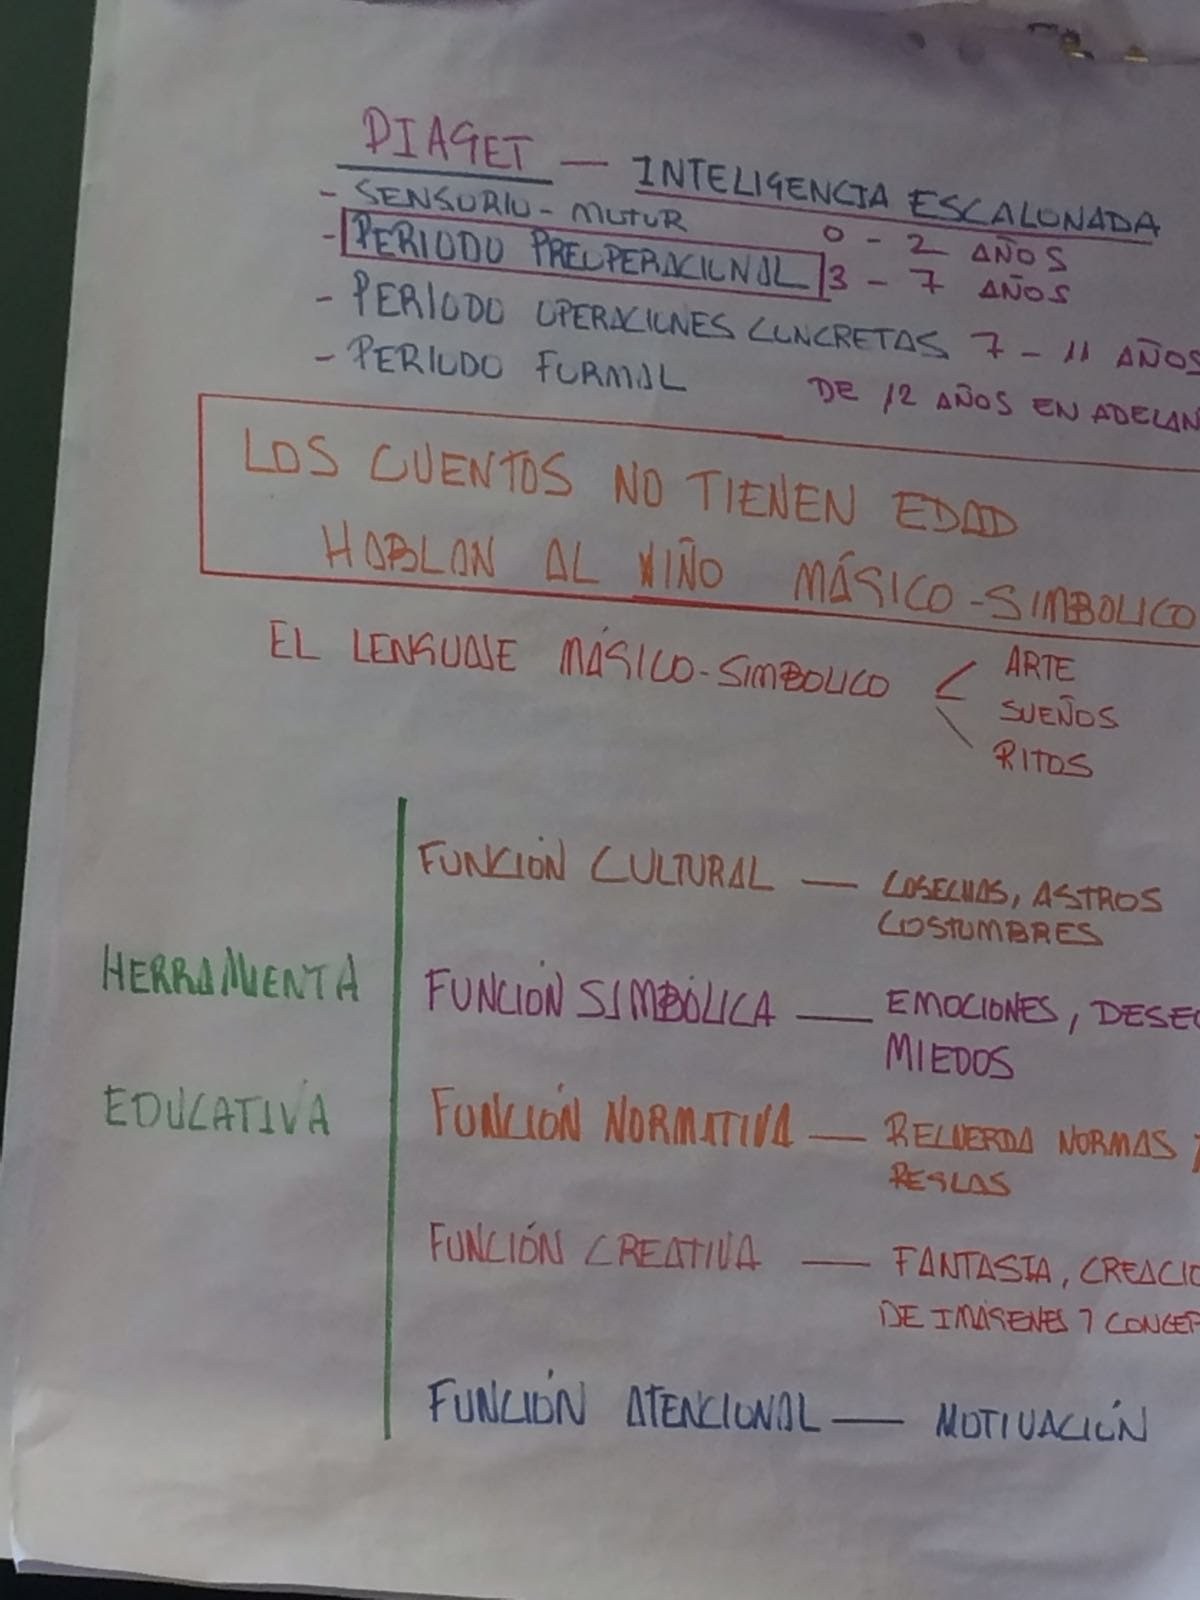 PIAGET — INTELIGENCIA ESCALONADA
- SENSORIO - MOTOR 0 - 2 AÑOS
- PERIODO PREOPERACIONAL 3 - 7 AÑOS
- PERIODO OPERACIONES CONCRETAS 7 - 11 AÑOS
- PERIODO FORMAL DE 12 AÑOS EN ADELAN
LOS CUENTOS NO TIENEN EDAD
HABLAN AL NIÑO MÁGICO-SIMBOLICO
EL LENGUAJE MÁGICO-SIMBOLICO < ARTE
SUEÑOS
RITOS
HERRAMIENTA
EDUCATIVA
FUNCIÓN CULTURAL — COSECHAS, ASTROS
COSTUMBRES
FUNCIÓN SIMBÓLICA — EMOCIONES, DESEO
MIEDOS
FUNCIÓN NORMATIVA — RECUERDA NORMAS Y
REGLAS
FUNCIÓN CREATIVA — FANTASIA, CREACIO
DE IMÁGENES Y CONCEP
FUNCIÓN ATENCIONAL — MOTIVACIÓN